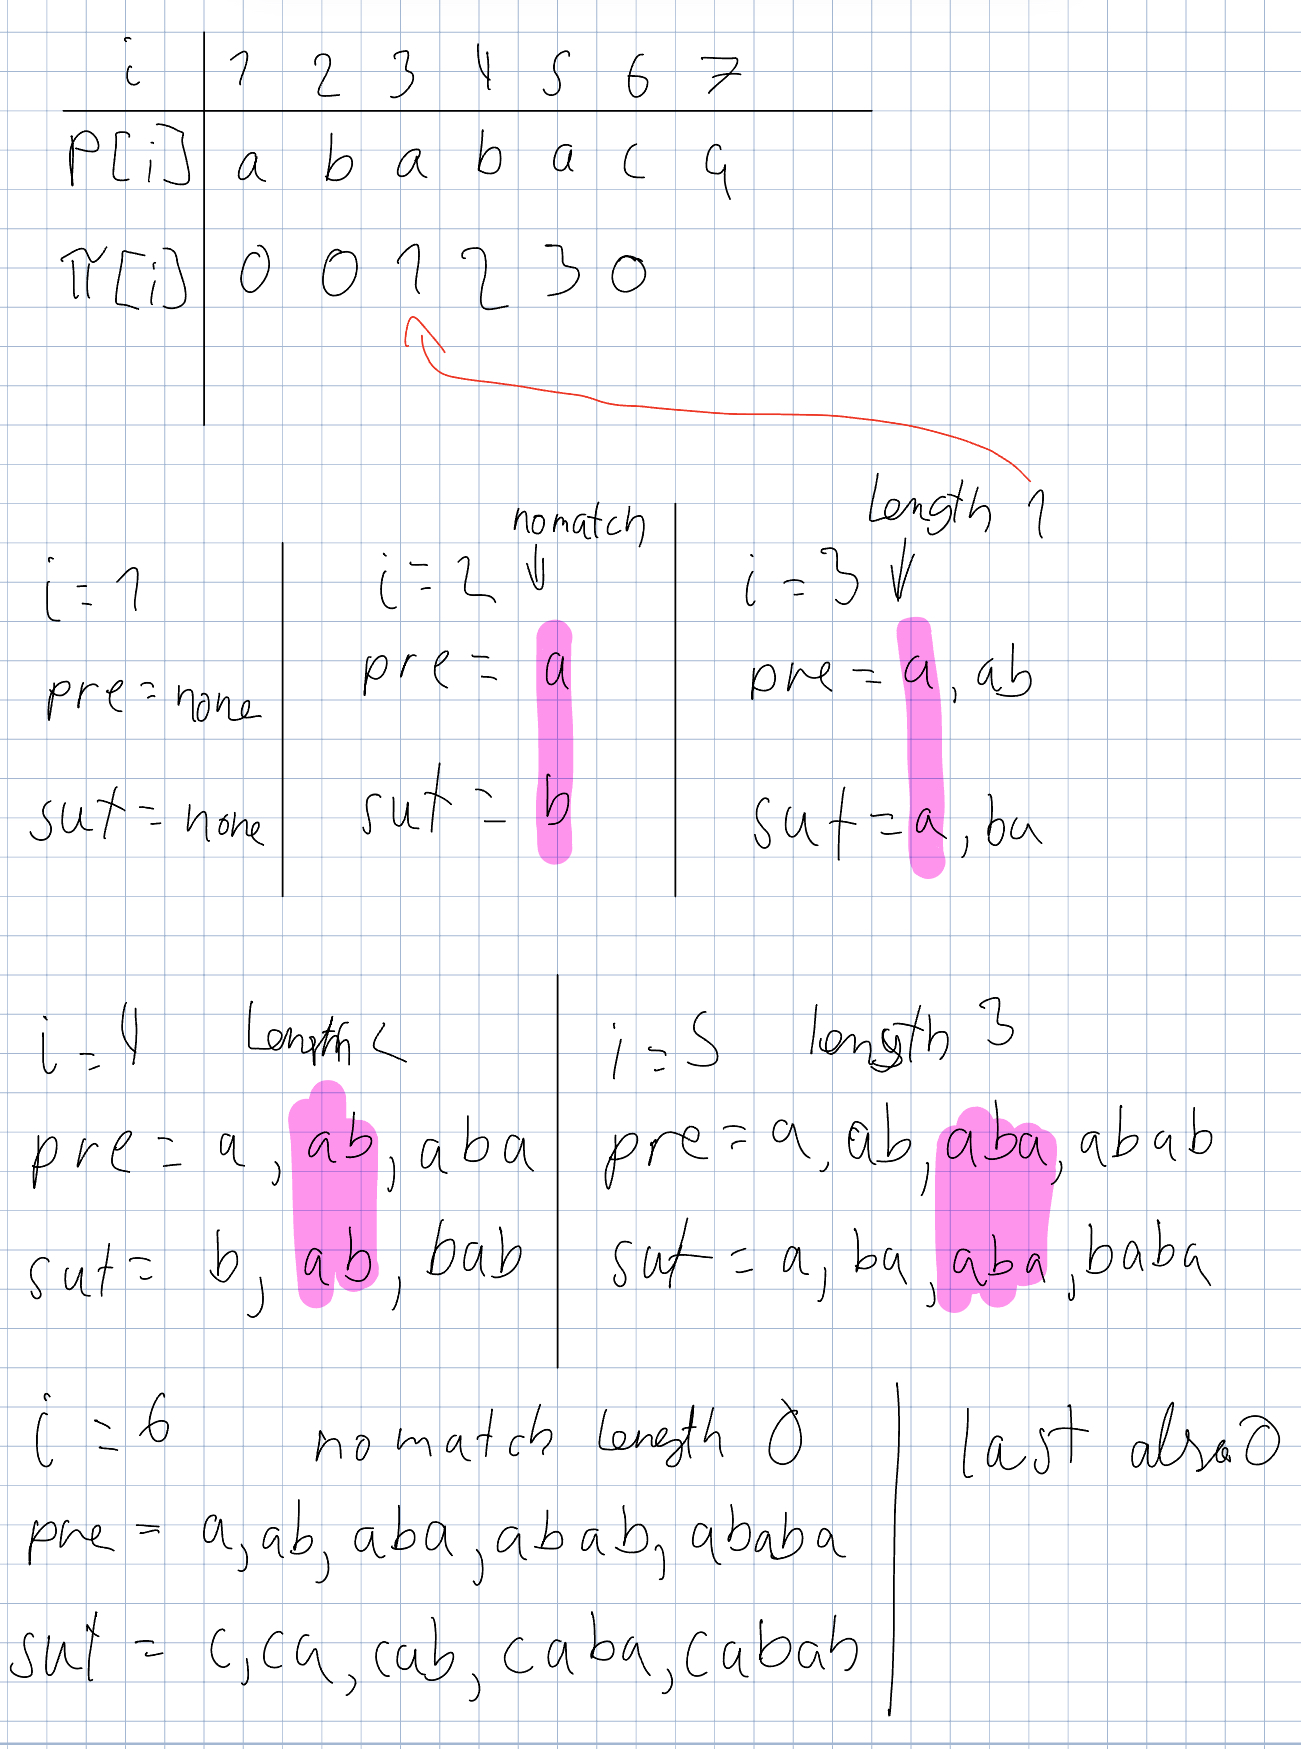 i 1 2 3 4 5 6 7
P[i] a b a b a c a
π[i] 0 0 1 2 3 0
i=1
pre=none
sut=none
no match
i=2 ↓
pre= a
sut= b
Length 1
i=3 ↓
pre=a, ab
sut=a, ba
i=4 Length 2
pre= a, ab, aba
sut= b, ab, bab
i=5 length 3
pre=a, ab, aba, abab
sut=a, ba, aba, baba
i=6 no match length 0
pre= a, ab, aba, abab, ababa
sut= c, ca, cab, caba, cabab
last also 0